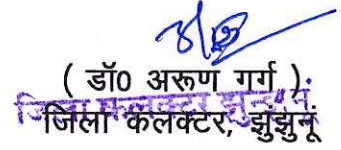 ( डॉ0 अरूण गर्ग )
जिला कलक्टर झुन्झुनूं
जिला कलक्टर, झुंझुनूं